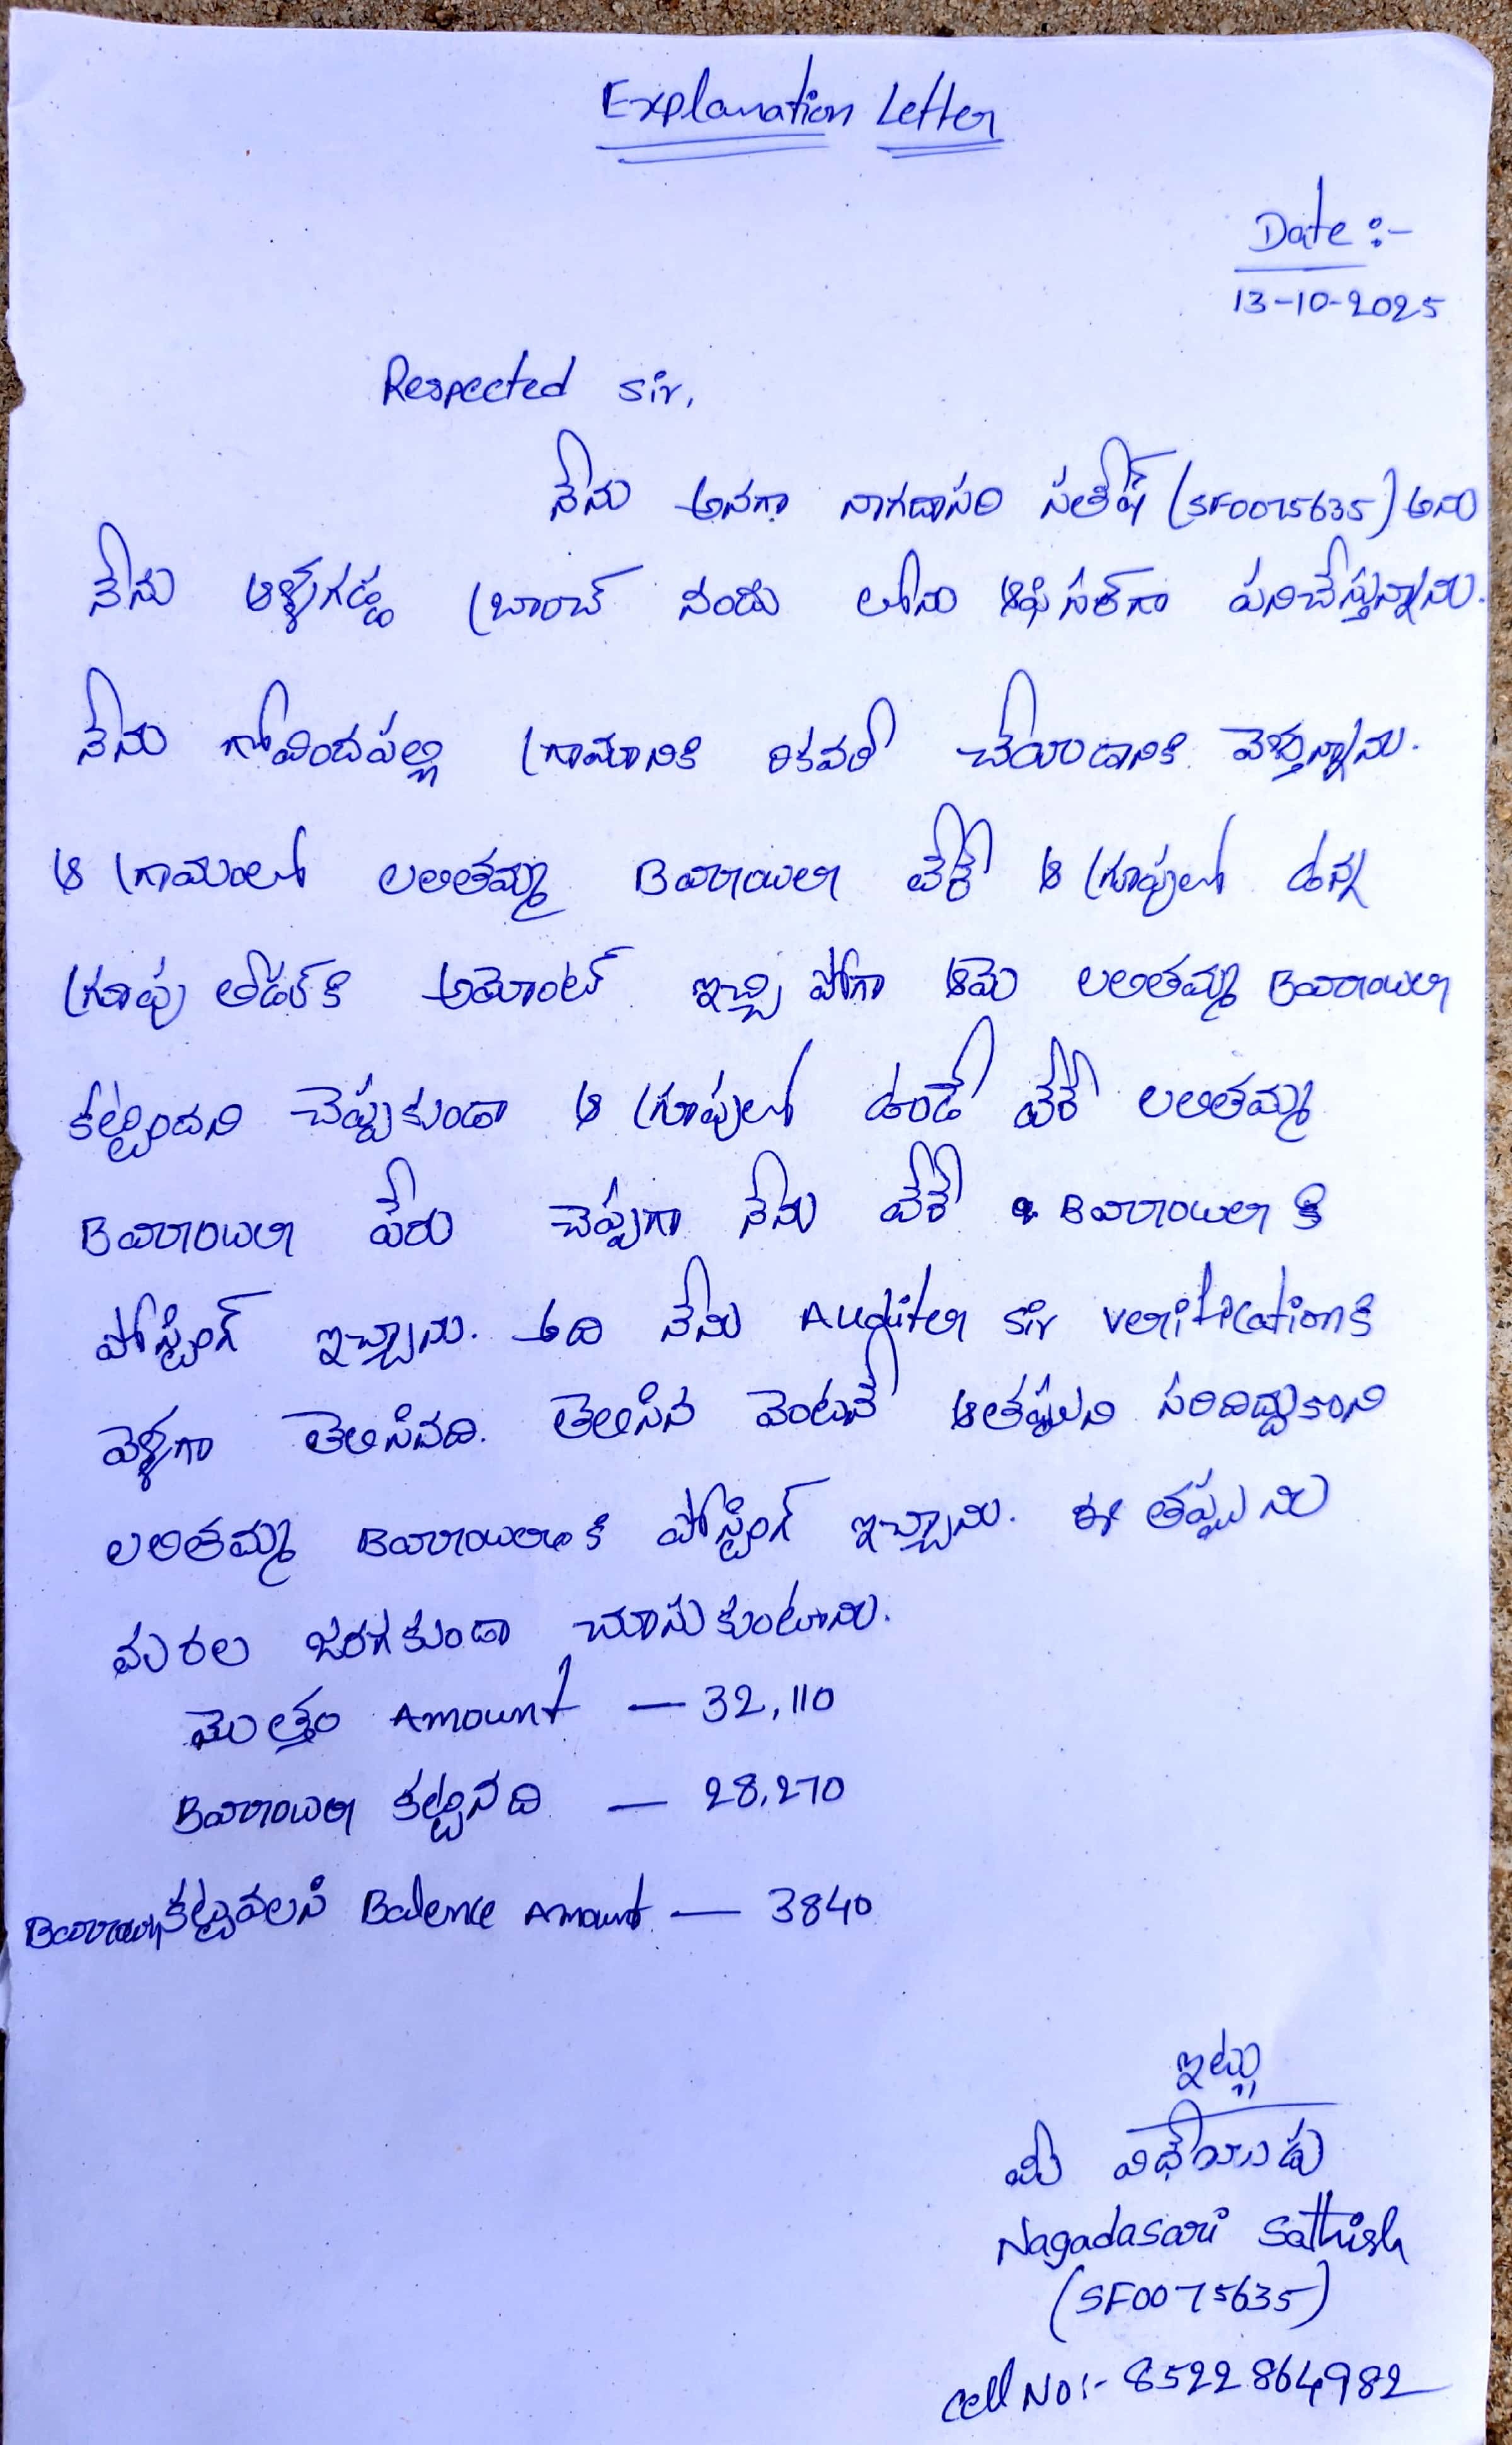 Explanation Letter
Date :-
13-10-2025
Respected Sir,
నేను అనగా నాగదాసరి సతీష్ (SF0075635) అను
నేను ఆళ్ళగడ్డ బ్రాంచ్ నందు లోను ఆఫీసర్‌గా పనిచేస్తున్నాను.
నేను గోవిందపల్లి గ్రామానికి రికవరీ చేయడానికి వెళ్తున్నాను.
ఆ గ్రామంలో లలితమ్మ Borrower వేరే ఆ గ్రూపులో ఉన్న
గ్రూపు లీడర్‌కి అమోంట్ ఇచ్చి పోగా ఆమె లలితమ్మ Borrower
కట్టిందని చెప్పకుండా ఆ గ్రూపులో ఉండే వేరే లలితమ్మ
Borrower పేరు చెప్పగా నేను వేరే Borrower కి
పోస్టింగ్ ఇచ్చాను. అది నేను Auditer Sir Verificationకి
వెళ్ళగా తెలిసినది. తెలిసిన వెంటనే ఆతప్పుని సరిదిద్దుకొని
లలితమ్మ Borrower కి పోస్టింగ్ ఇచ్చాను. ఈ తప్పును
మరల జరగకుండా చూసుకుంటాను.
మొత్తం Amount — 32,110
Borrower కట్టినది — 28,270
Borrower కట్టవలసి Balence Amount — 3840
ఇట్లు
మీ విధేయుడు
Nagadasari Sathish
(SF0075635)
Cell No:- 8522864982